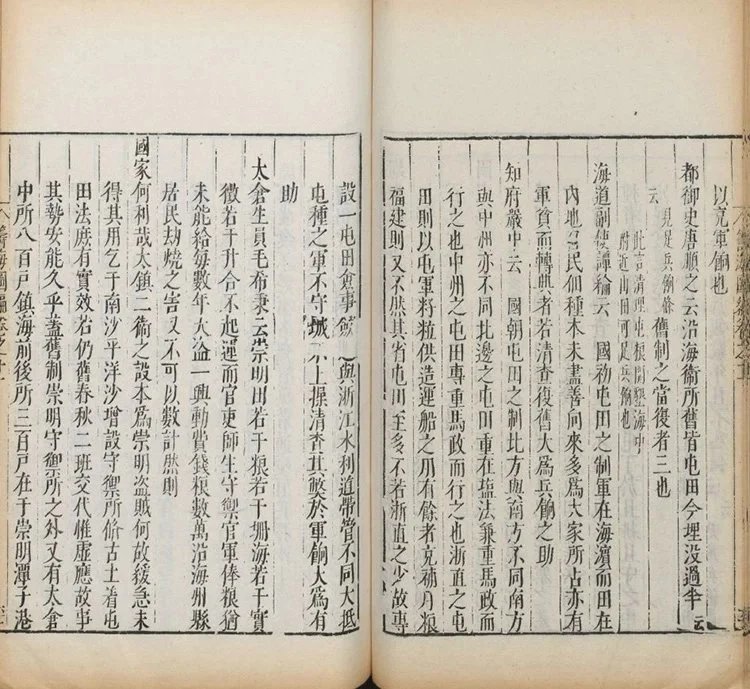 以充軍餉也
都御史唐順之云沿海衛所舊皆屯田今埋没過半云
云見足兵餉條舊制之當復者三也此言清理屯根開墾海中附近山田可足兵餉也
海道副使譚綸云國初屯田之制軍在海濱而田在
內地官民佃種本未盡善向來多爲大家所占亦有
軍貧而轉典者若清查復舊大爲兵餉之助
知府嚴中云國朝屯田之制北方與南方不同南方
與中州亦不同北邊之屯田重在塩法兼重馬政而
行之也中州之屯田專重馬政而行之也浙直之屯
田則以屯軍籽粒供造運船之用有餘者充補月粮
福建則又不然其省屯田至多不若浙直之少故專
設一屯田僉事與浙江水利道帶管不同大抵
屯種之軍不守城不上操清查其獘於軍餉大爲有
助
太倉生員毛希秉云崇明田若干粮若干坍海若干實
徵若干升合不起運而官吏師生守禦官軍俸粮猶
未能給每數年大盜一興動費錢粮數萬沿海州縣
居民劫燒之害又不可以數計然則
國家何利哉太鎮二衛之設本爲崇明盜賊何故緩急未
得其用乞于南沙平洋沙增設守禦所脩古土着屯
田法庶有實效若仍舊春秋二班交代惟虛應故事
其勢安能久乎蓋舊制崇明守禦所之外又有太倉
中所八百戶鎮海前後所三百戶在于崇明潭子港